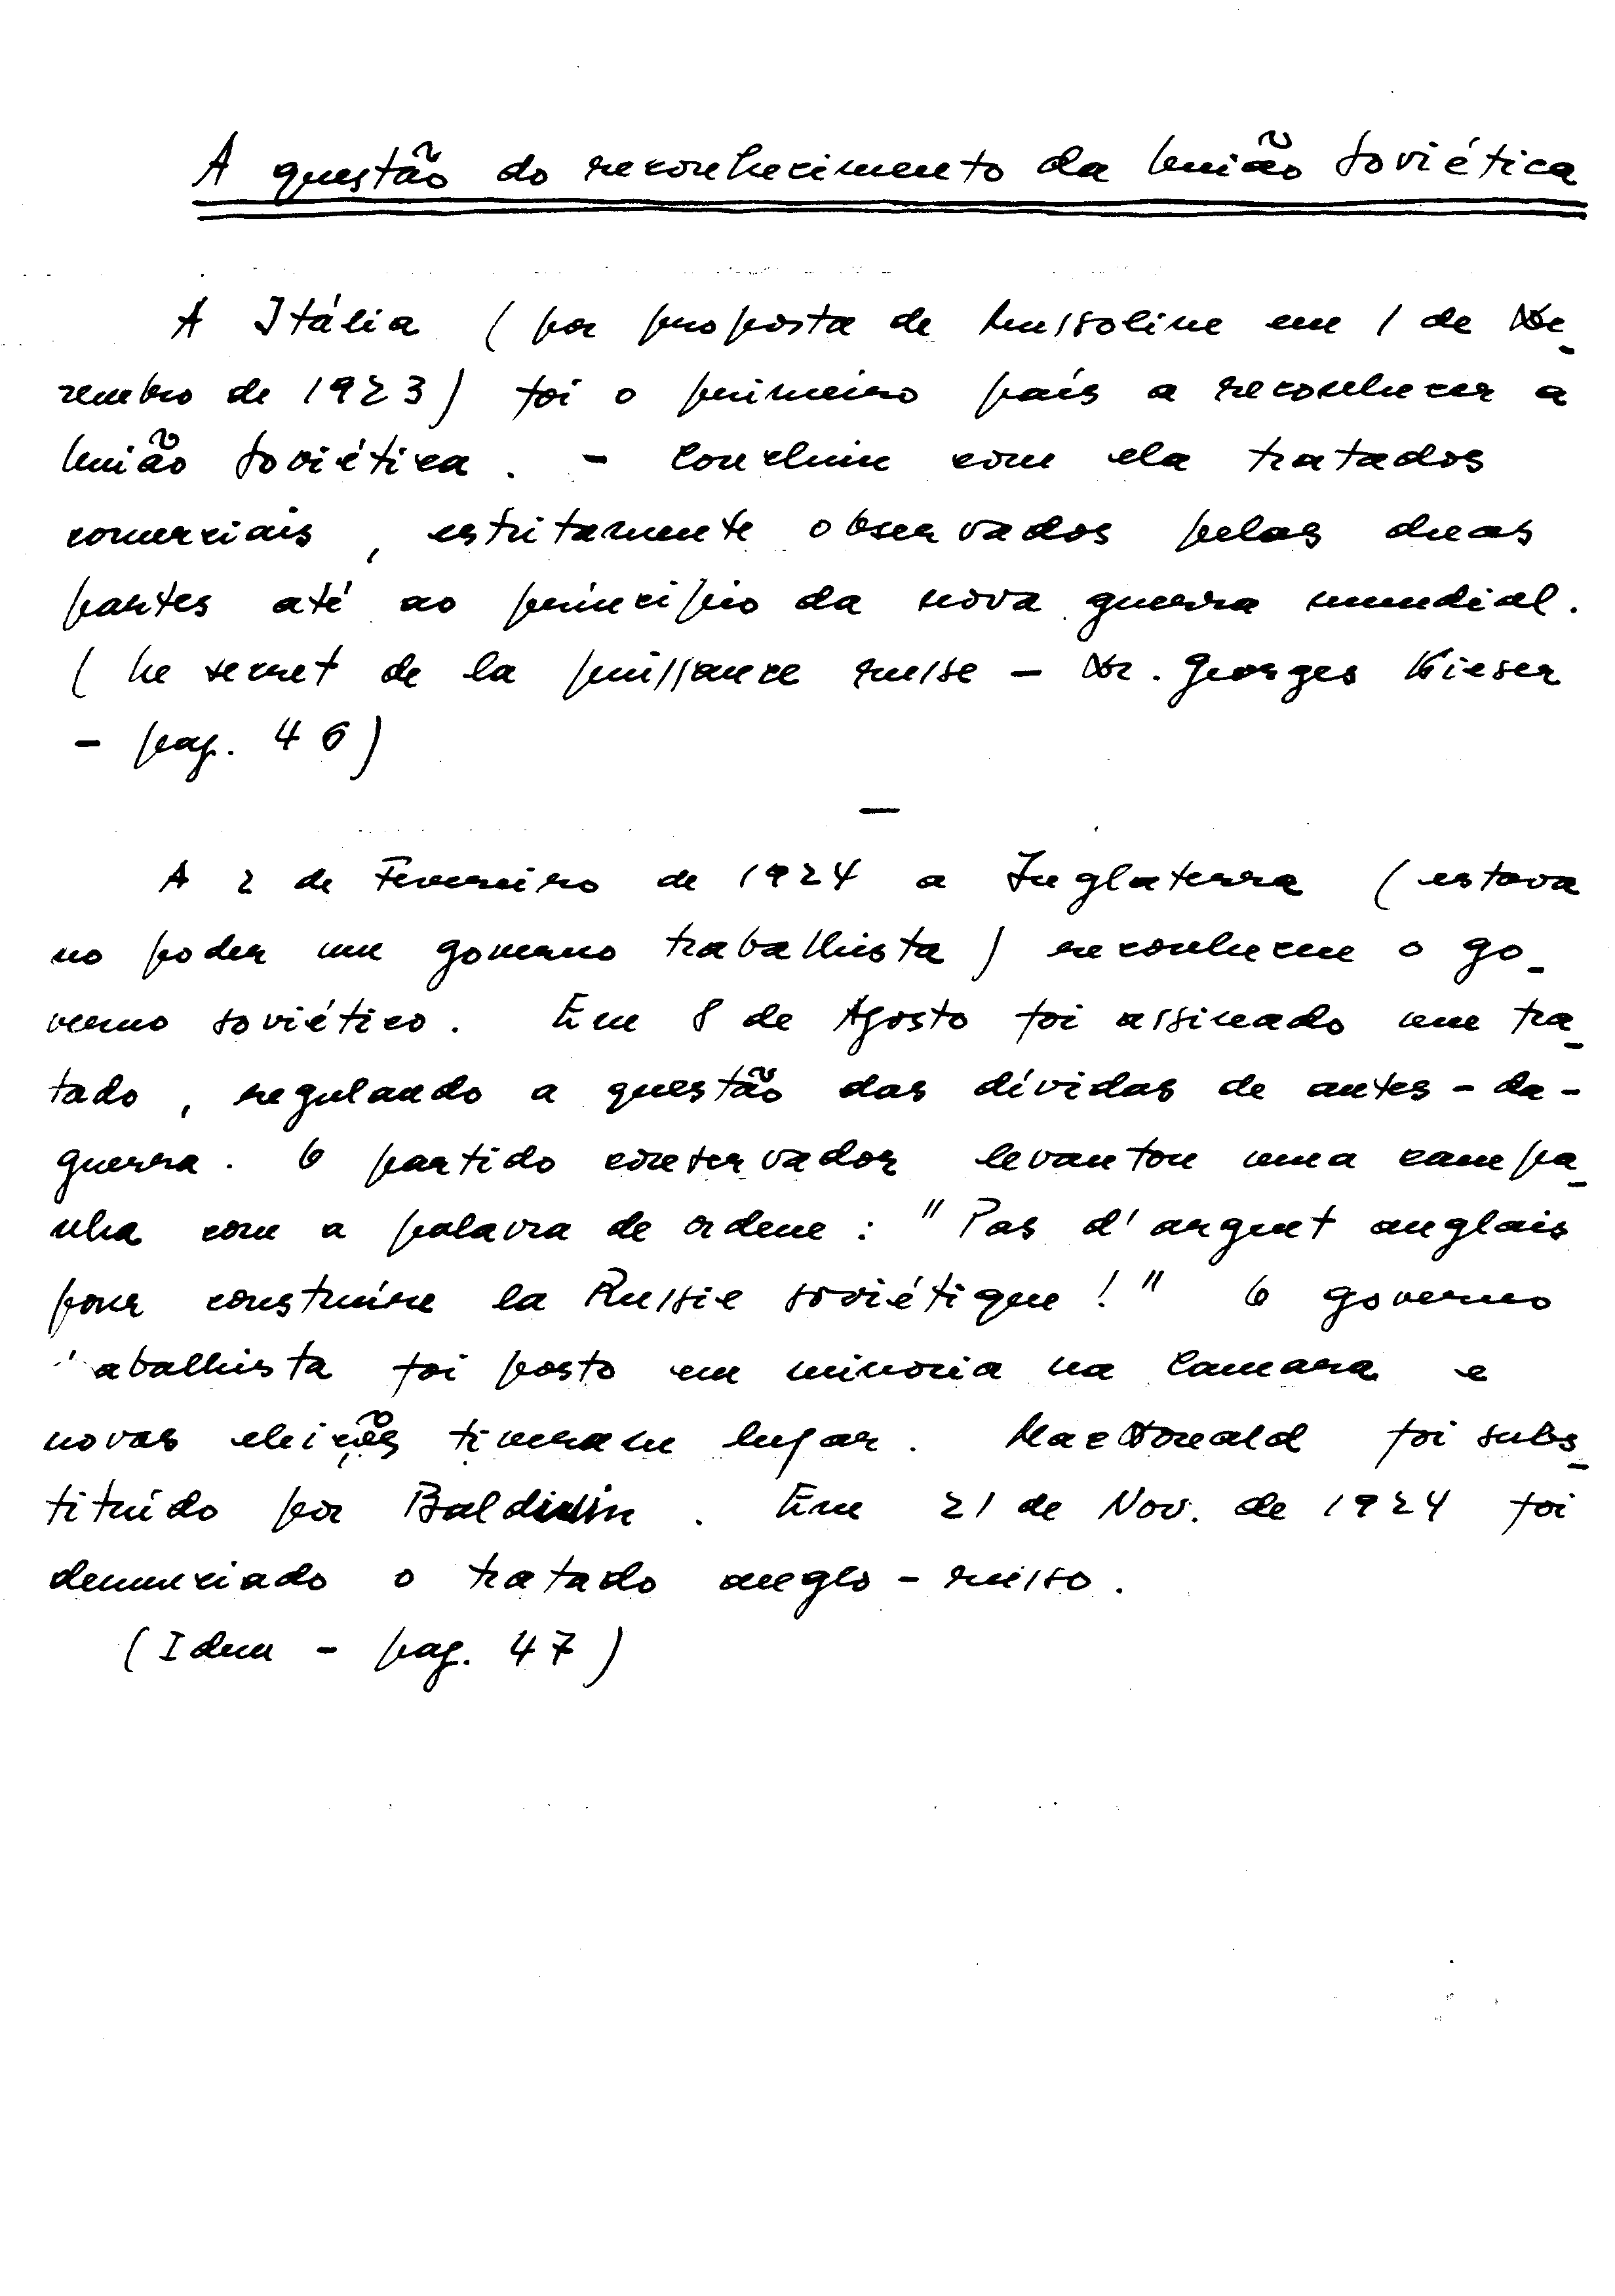 A questão do reconhecimento da União Soviética
A Itália (por proposta de Mussoline em 1 de De_
zembro de 1923) foi o primeiro país a reconhecer a
União Soviética. - Concluiu com ela tratados
comerciais, estritamente observados pelas duas
partes até ao princípio da nova guerra mundial.
(Le secret de la puissance russe - Dr. Georges Kieser
- pag. 46)
—
A 2 de Fevereiro de 1924 a Inglaterra (estava
no poder um governo trabalhista) reconheceu o go_
verno soviético. Em 8 de Agosto foi assinado um tra_
tado, regulando a questão das dívidas de antes-da-
guerra. O partido conservador levantou uma campa_
nha com a palavra de ordem: "Pas d'argent anglais
pour construire la Russie soviétique!" O governo
abalhista foi posto em minoria na Camara e
novas eleições tiveram lugar. MacDonald foi subs_
tituído por Baldwin. Em 21 de Nov. de 1924 foi
denunciado o tratado anglo-russo.
(Idem - pag. 47)